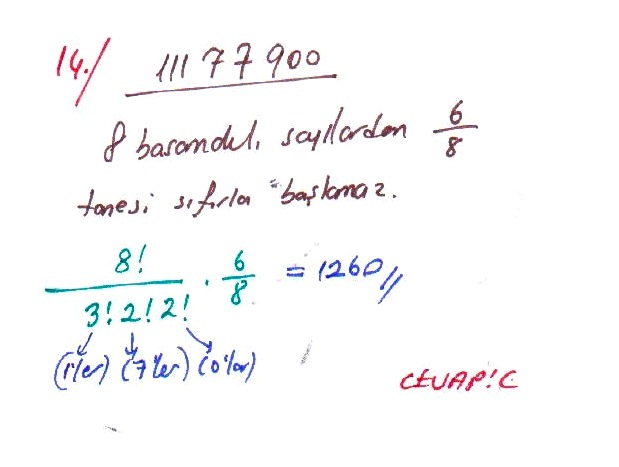 14./ 11177900
8 basamaklı sayılardan 6/8
tanesi sıfırla başlamaz.
8! / 3!2!2! . 6/8 = 1260//
(1'ler) (7'ler) (0'lar)
CEVAP:C